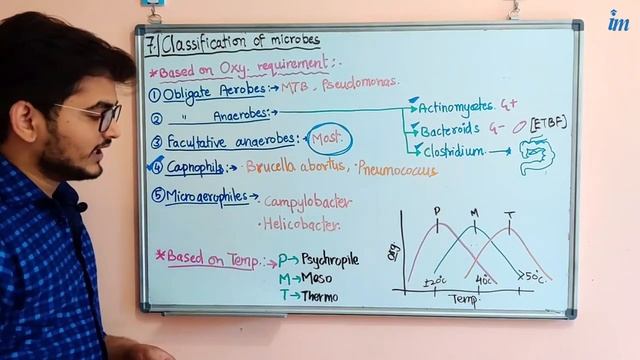 im
7. Classification of microbes
*Based on Oxy. requirement:-
① Obligate Aerobes:→ MTB, Pseudomonas.
② " Anaerobes:→ Actinomycetes G+
Bacteroids G- [ETBF]
Clostridium.
③ Facultative anaerobes:→ Most.
④ Capnophils:→ · Brucella abortus, · Pneumococcus
⑤ Microaerophiles→ · Campylobacter
· Helicobacter.
*Based on Temp.:→ P→ Psychropile
M→ Meso
T→ Thermo
P M T
org
±20°C 40°C >50°C.
Temp.